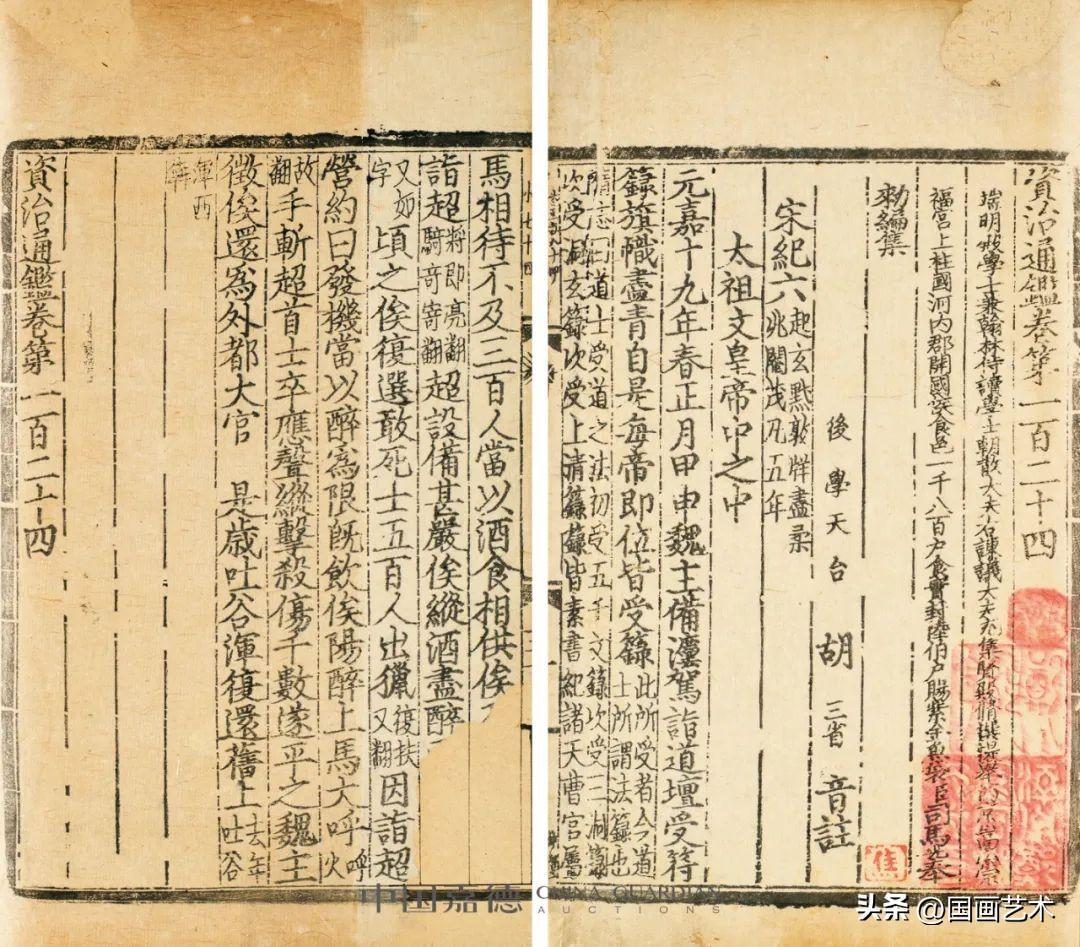 資治通鑑卷第一百二十四
端明殿學士兼翰林侍讀學士朝散大夫右諫議大夫充集賢殿脩撰提舉西京嵩山崇
福宮上柱國河內郡開國侯食邑一千八百户食實封陸伯户賜紫金魚袋臣司馬光奉
勑編集
後學天台 胡三省 音註
宋紀六起玄黓敦牂盡柔兆閹茂凡五年
太祖文皇帝中之中
元嘉十九年春正月甲申魏主備灋駕詣道壇受符
籙旗幟盡青自是每帝即位皆受籙此所受者今道士所謂法籙也
隋志曰道士受道之法初受五千文籙次受三洞籙
次受洞玄籙次受上清籙籙皆素書紀諸天曹官屬
馬相待不及三百人當以酒食相供俟
詣超將即亮翻騎奇寄翻超設備甚嚴俟縱酒盡醉
又如字頃之俟復選敢死士五百人出獵復扶又翻因詣超
營約曰發機當以醉爲限既飲俟陽醉上馬大呼呼火
故翻手斬超首士卒應聲縱擊殺傷千數遂平之魏主
徵俟還爲外都大官 是歲吐谷渾復還舊土去年吐谷
渾西
資治通鑑卷第一百二十四
中国嘉德 CHINA GUARDIAN
AUCTIONS
头条 @国画艺术